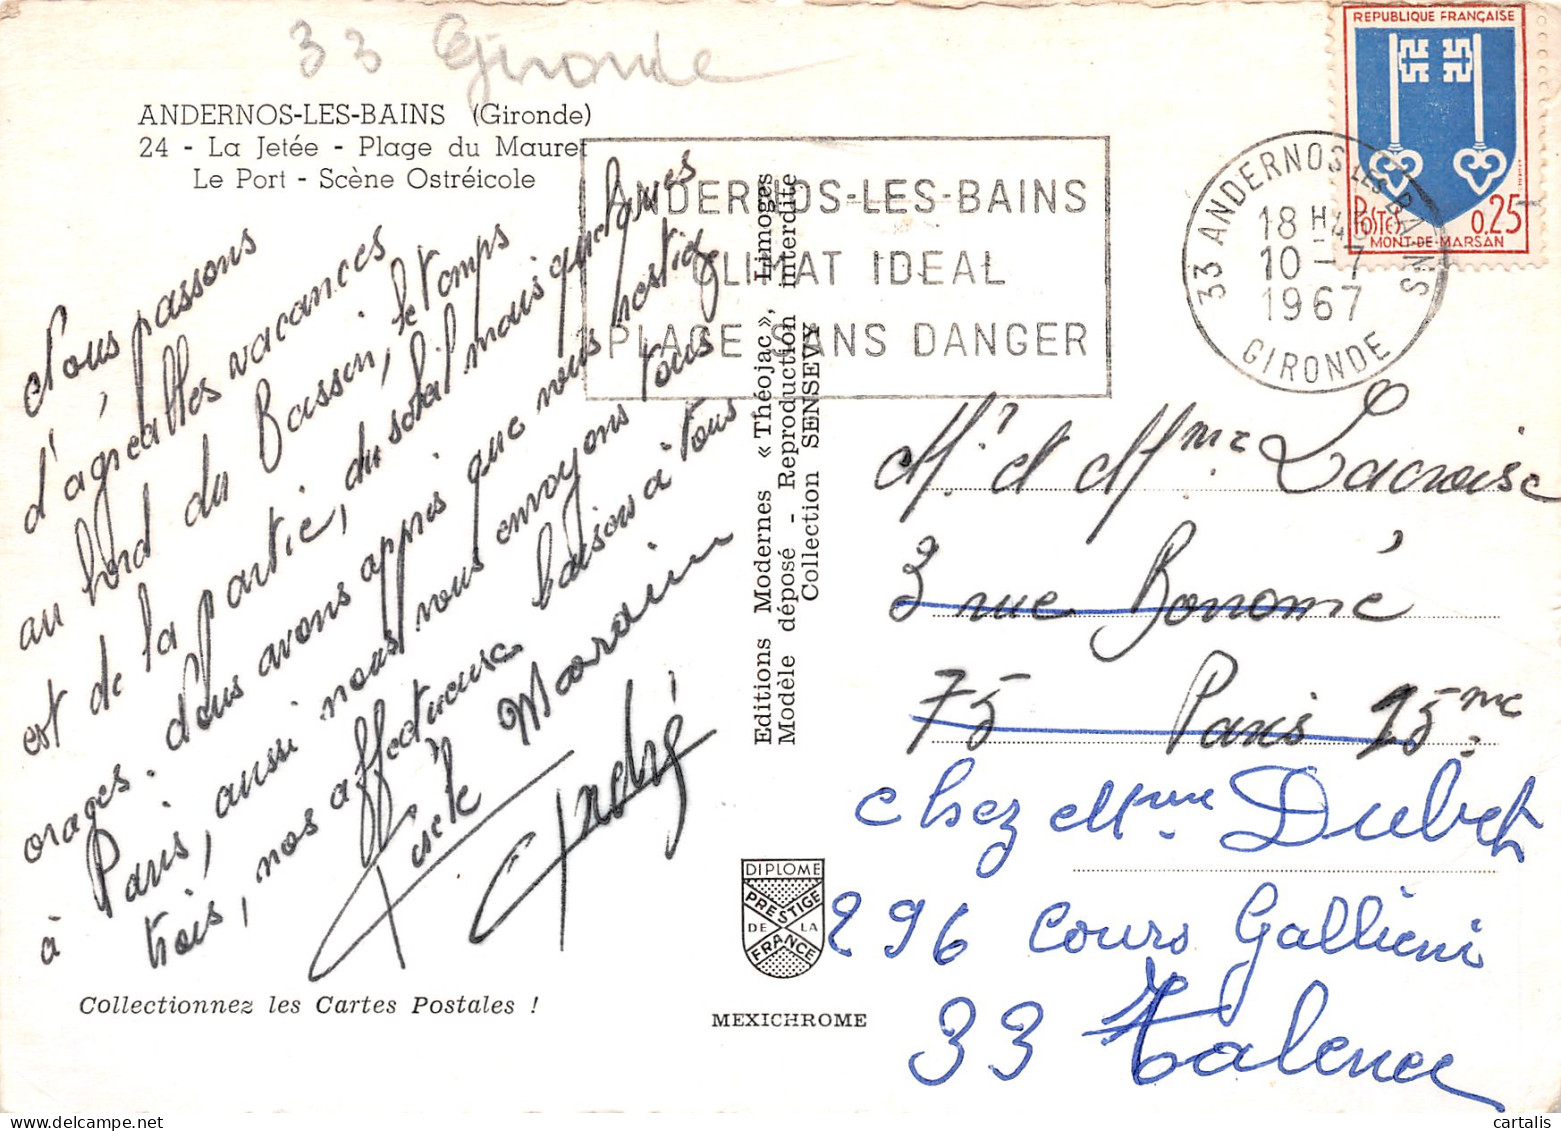 33 Gironde
ANDERNOS-LES-BAINS (Gironde)
24 - La Jetée - Plage du Mauret
Le Port - Scène Ostréicole
Nous passons
d'agréables vacances
au bord du Bassin, le temps
est de la partie, du soleil mais quelques
orages. Nous avons appris que nous restiez
à Paris, aussi nous vous envoyons tous
trois, nos affectueux baisers à tous
Gisèle Maraim
André
Collectionnez les Cartes Postales !
Editions Modernes « Théojac », Limoges
Modèle déposé - Reproduction interdite
Collection SENSEVY
DIPLOME
PRESTIGE
DE LA
FRANCE
MEXICHROME
ANDERNOS-LES-BAINS
CLIMAT IDEAL
PLAGE SANS DANGER
33 ANDERNOS-LES-BAINS
18 H
10-7
1967
GIRONDE
REPUBLIQUE FRANÇAISE
POSTES 0,25
MONT-DE-MARSAN
Mr et Mme Lacroise
3 rue Bonomé
75 Paris 15me
chez Mme Dubet
296 cours Gallieni
33 Talence
cartalis